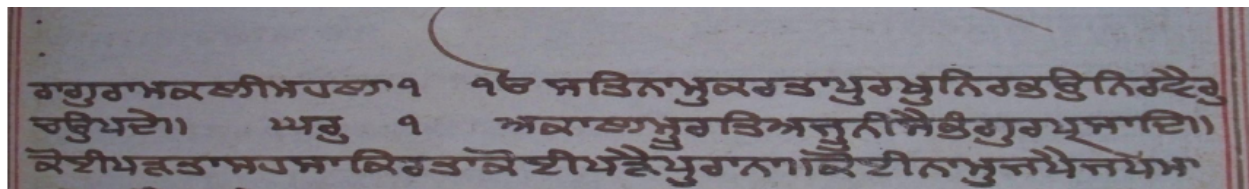 ਰਾਗੁਰਾਮਕਲੀਮਹਲਾ੧ ੴ ਸਤਿਨਾਮੁਕਰਤਾਪੁਰਖੁਨਿਰਭਉਨਿਰਵੈਰੁ
ਚਉਪਦੇ॥ ਘਰੁ ੧ ਅਕਾਲਮੂਰਤਿਅਜੂਨੀਸੈਭੰਗੁਰਪ੍ਰਸਾਦਿ॥
ਕੋਈਪੜਤਾਸਹਸਾਕਿਰਤਾਕੋਈਪੜੈਪੁਰਾਨਾ॥ਕੋਈਨਾਮੁਜਪੈਜਪਮਾ